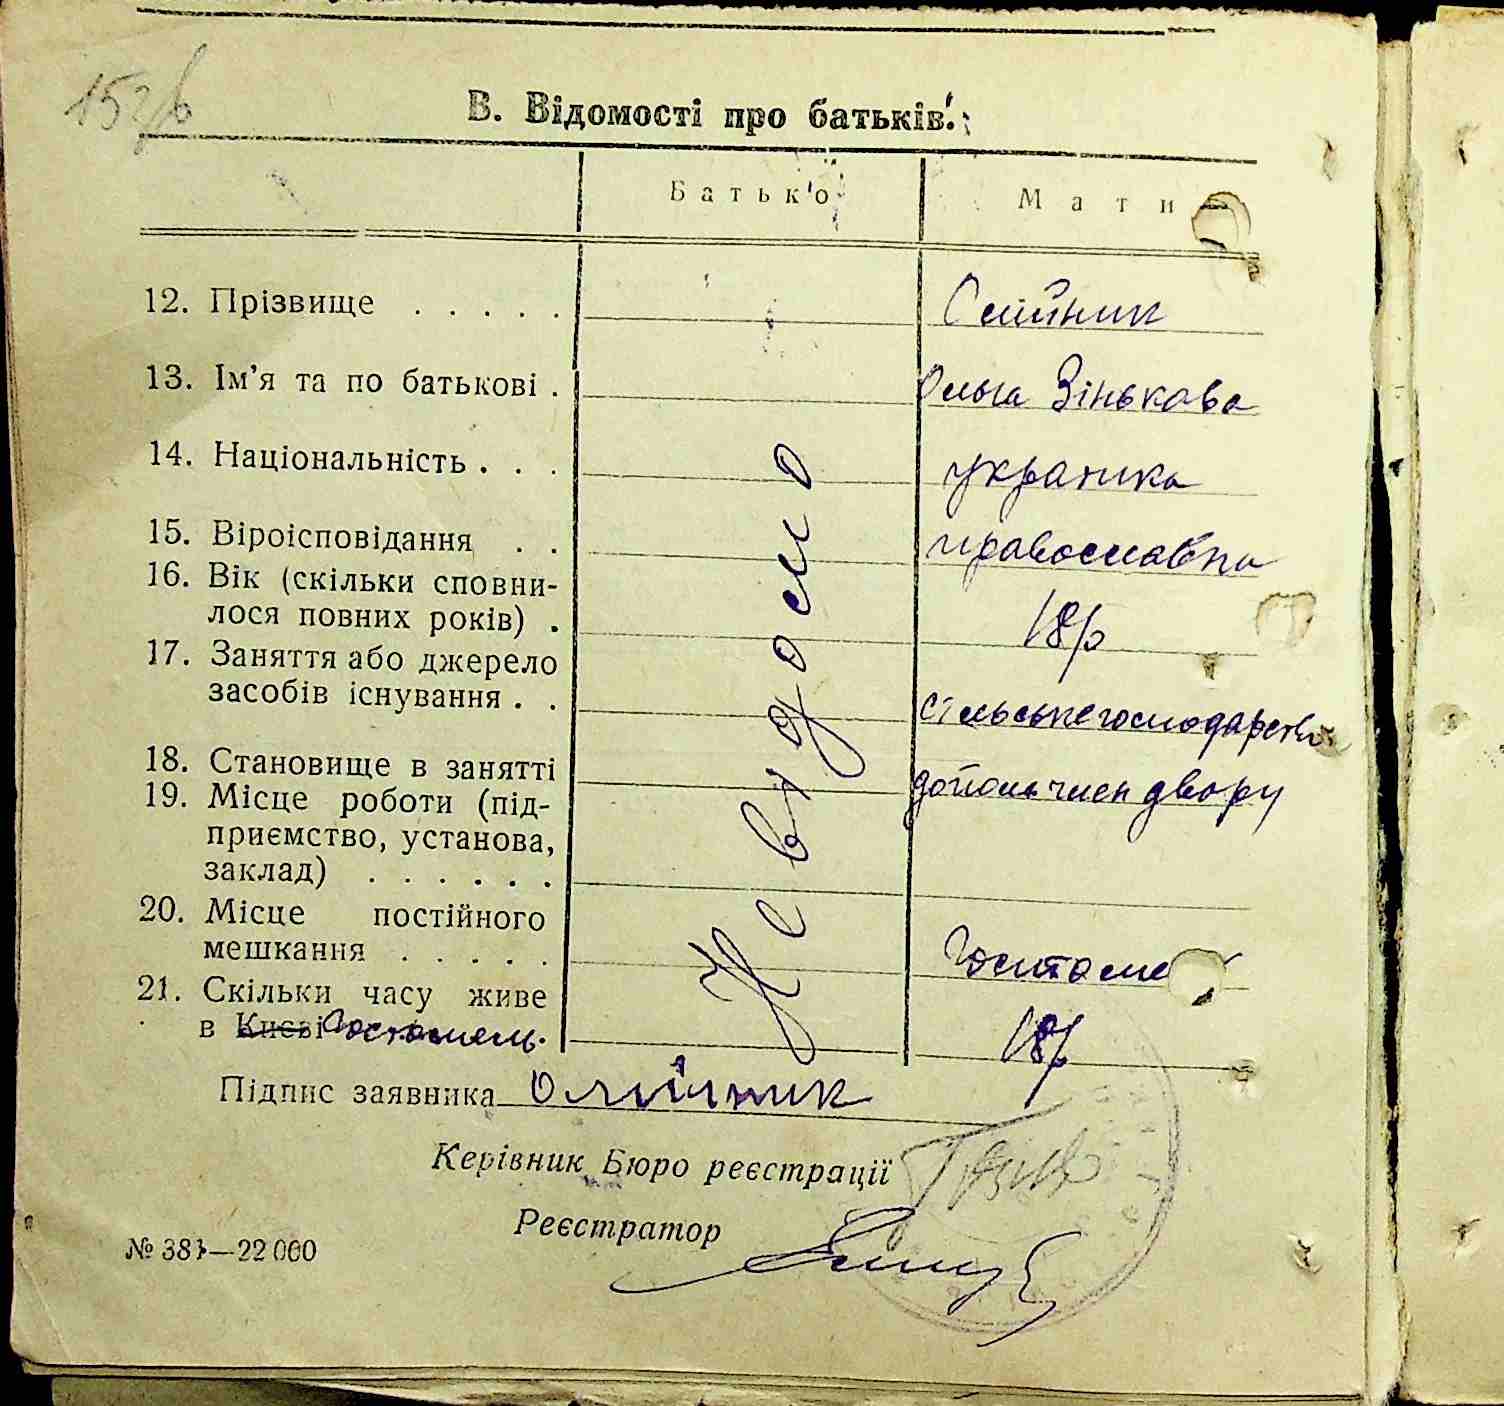 В. Відомості про батьків:
Батько Мати
12. Прізвище . . . . . Олійник
13. Ім’я та по батькові . Ольга Зінькова
14. Національність . . . українка
15. Віроісповідання . . православна
16. Вік (скільки сповни-
лося повних років) . 18 р
17. Заняття або джерело
засобів існування . . сільське господарство
18. Становище в занятті допом член двору
19. Місце роботи (під-
приємство, установа,
заклад) . . . . . .
Невідомо
20. Місце постійного
мешкання . . . . . Гостоме
21. Скільки часу живе
в Києві Гостомель. 18 р
Підпис заявника Олійник
Керівник Бюро реєстрації
Реєстратор
№ 381—22 000